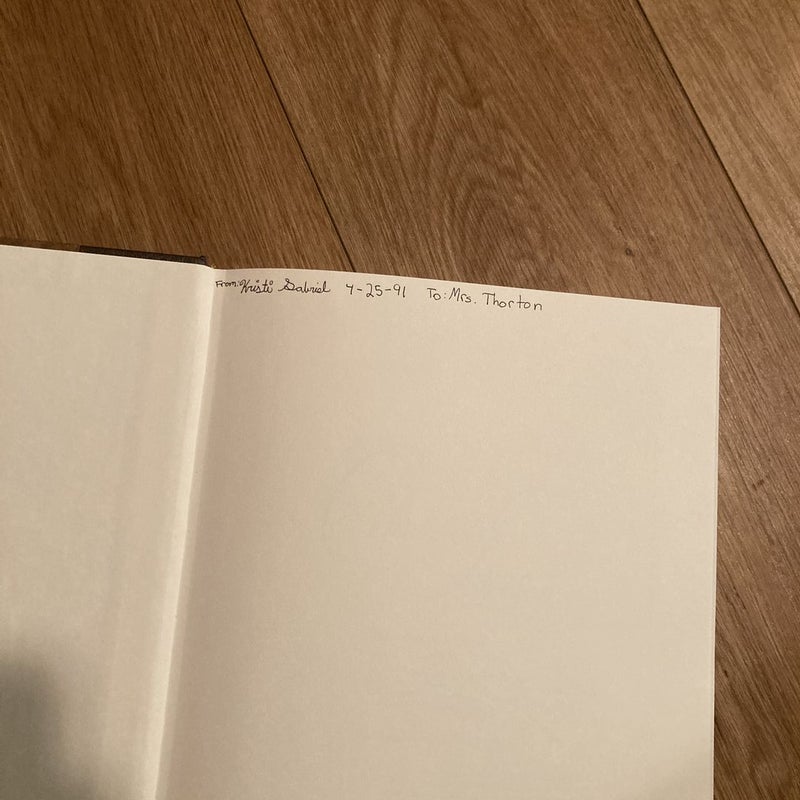 From: Kristi Gabriel 4-25-91 To: Mrs. Thorton